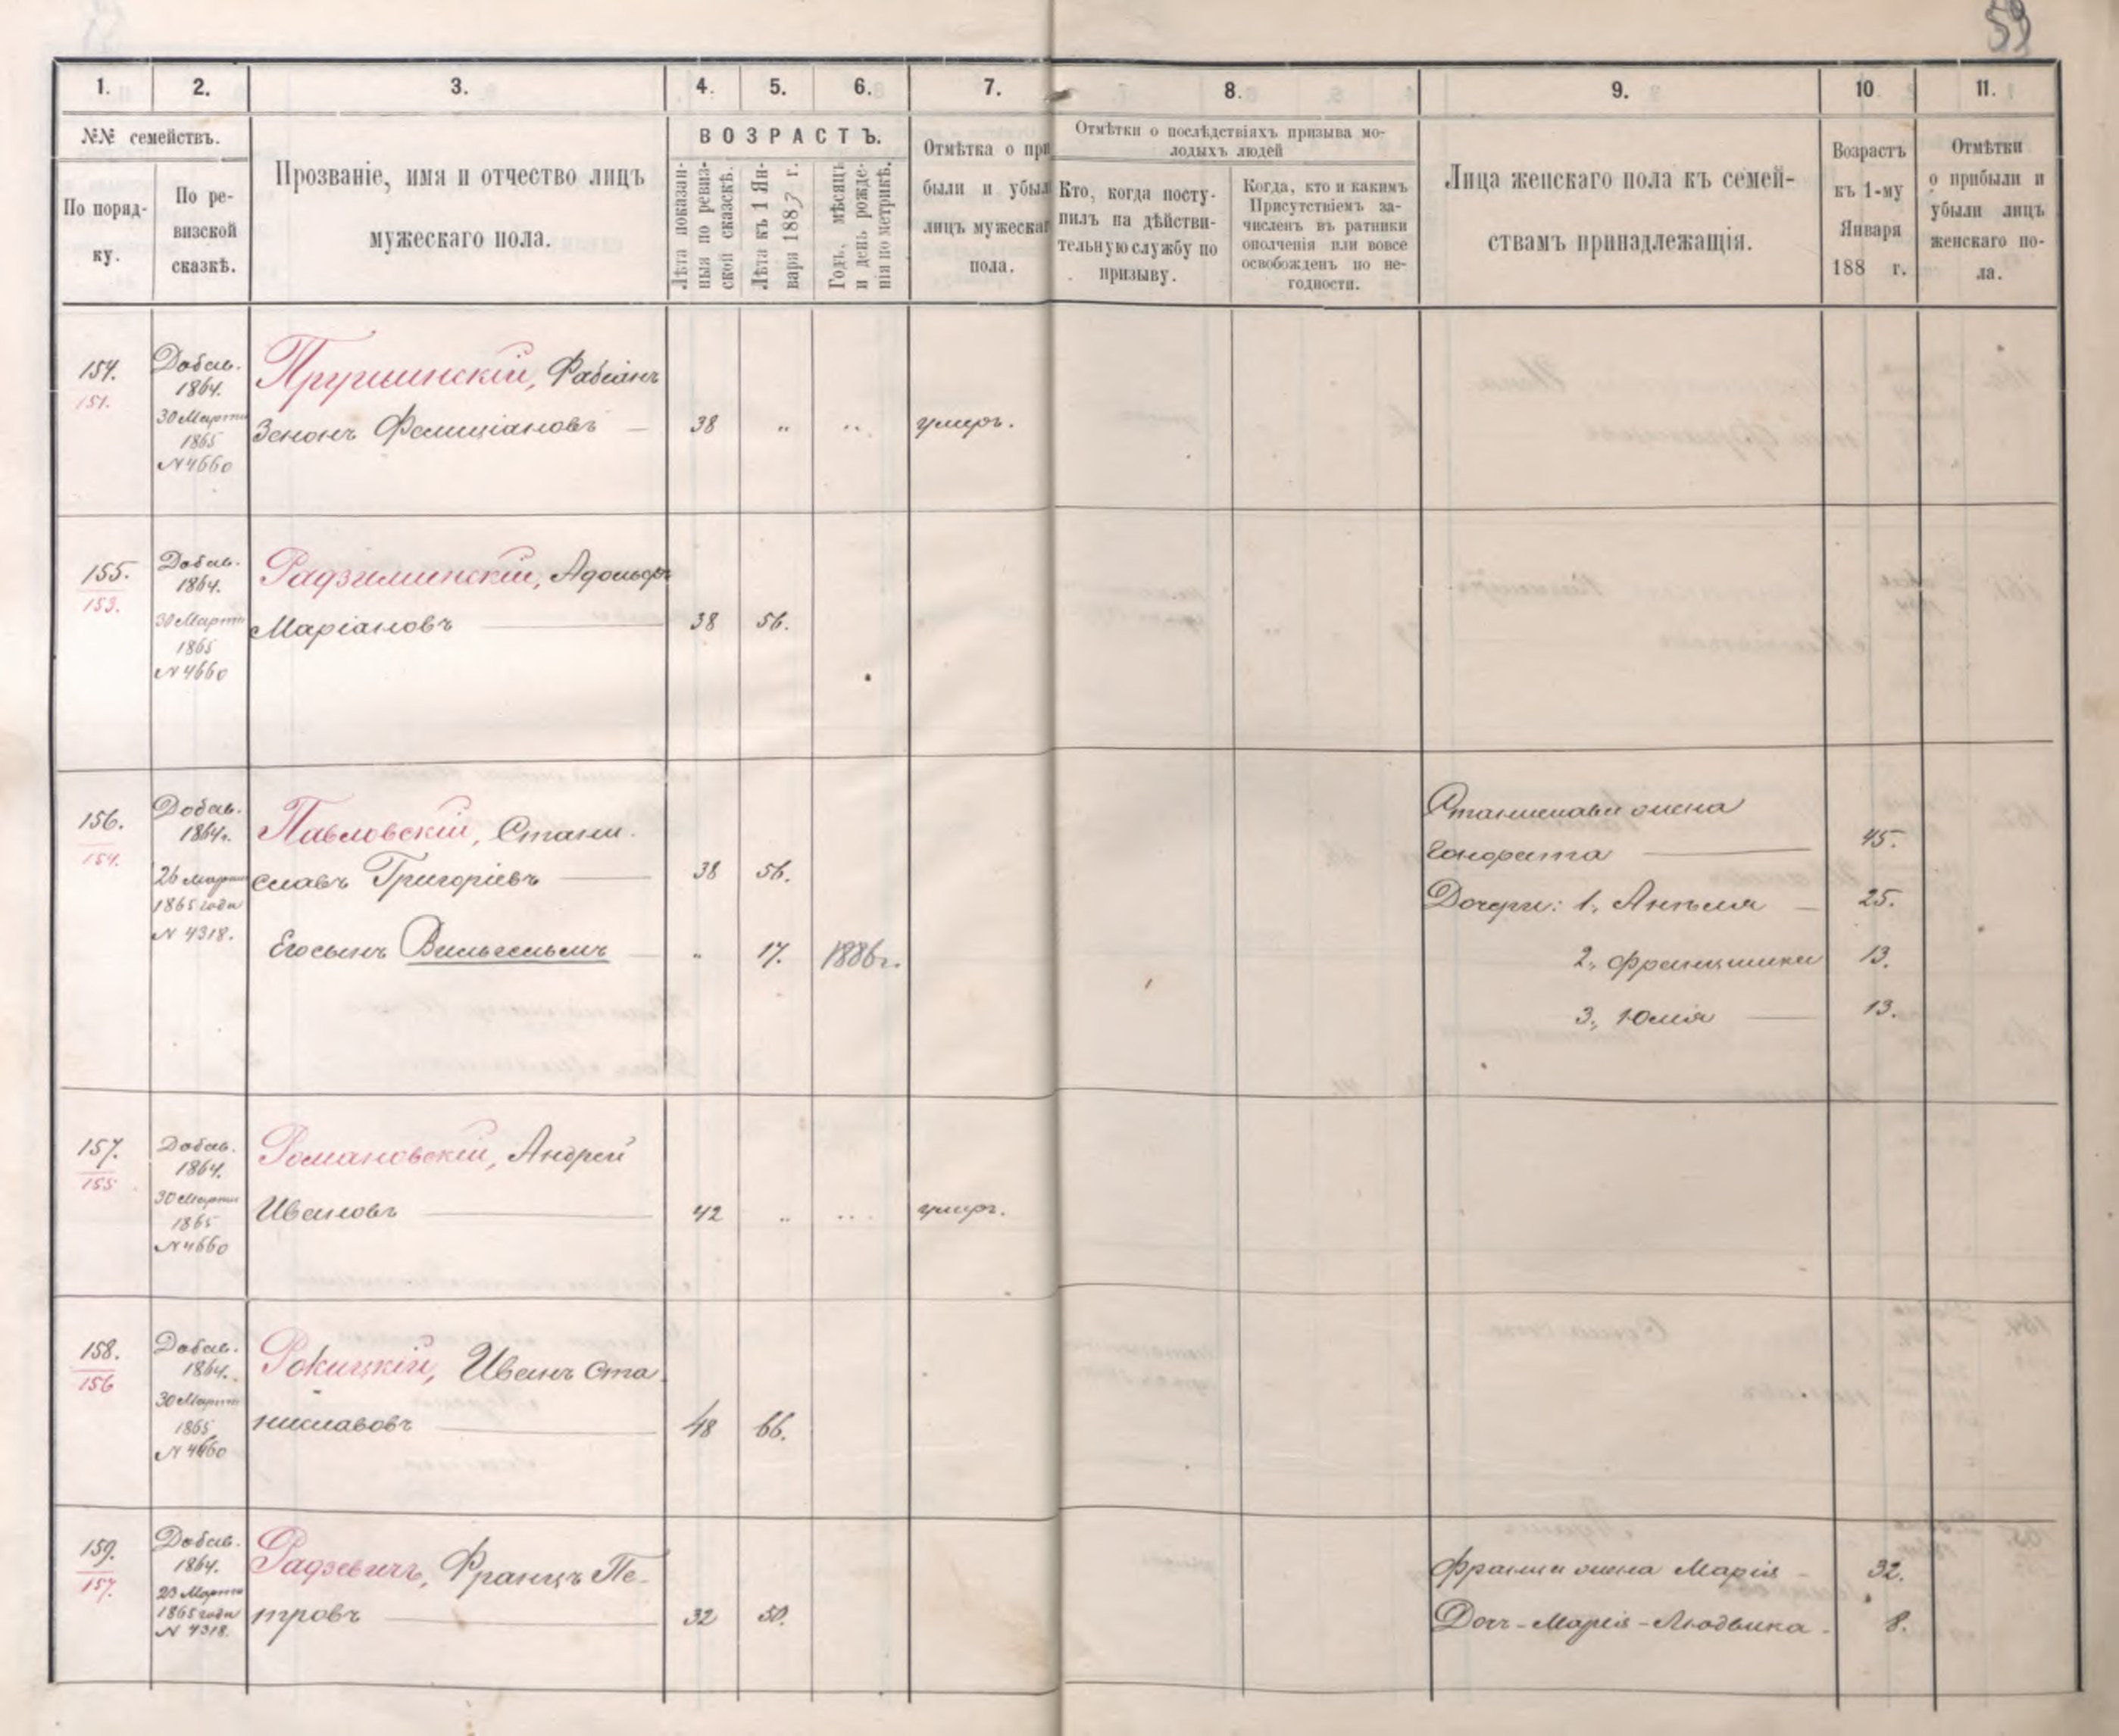 59
1. 2. 3. 4. 5. 6. 7. 8. 9. 10 11.
№№ семействъ.
По поряд-
ку.
По ре-
визской
сказкѣ.
Прозваніе, имя и отчество лицъ
мужескаго пола.
ВОЗРАСТЪ.
Лѣта показан-
ныя по ревиз-
ской сказскѣ.
Лѣта къ 1 Ян-
варя 1883 г.
Годъ, мѣсяцъ
и день рожде-
нія по метрикѣ.
Отмѣтка о при
были и убыл
лицъ мужескаг
пола.
Отмѣтки о послѣдствіяхъ призыва мо-
лодыхъ людей
Кто, когда посту-
пилъ на дѣйстви-
тельную службу по
призыву.
Когда, кто и какимъ
Присутствіемъ за-
численъ въ ратники
ополченія или вовсе
освобожденъ по не-
годности.
Лица женскаго пола къ семей-
ствамъ принадлежащія.
Возрастъ
къ 1-му
Января
188 г.
Отмѣтки
о прибыли и
убыли лицъ
женскаго по-
ла.
154.
151.
Добав.
1864.
30 Марта
1865
N 4660
Прушинскій, Фабіанъ
Зенонъ Фелиціановъ — 38 „ „ умеръ.
155.
153.
Добав.
1864.
30 Марта
1865
N 4660
Радзиминскій, Адольфъ
Маріановъ — 38 56.
156.
154.
Добав.
1864г.
26 Марта
1865 года
N 4318.
Павловскій, Стани-
славъ Григоріевъ — 38 56.
Его сынъ Вильгельмъ — „ 17. 1886г.
Станислава жена
Гонората — 45.
Дочери: 1, Анѣля — 25.
2, Францишка 13.
3, Юлія — 13.
157.
155
Добав.
1864.
30 Марта
1865
N 4660
Романовскій, Андрей
Ивановъ — 42 „ „ умеръ.
158.
156
Добав.
1864.
30 Марта
1865
N 4660
Рокицкій, Иванъ Ста
ниславовъ — 48 66.
159.
157.
Добав.
1864.
Марта
1865 года
N 4318.
Радзевичъ, Францъ Пе-
тровъ — 32 50.
Франца жена Марія - 32.
Дочь - Марія - Людвика - 8.